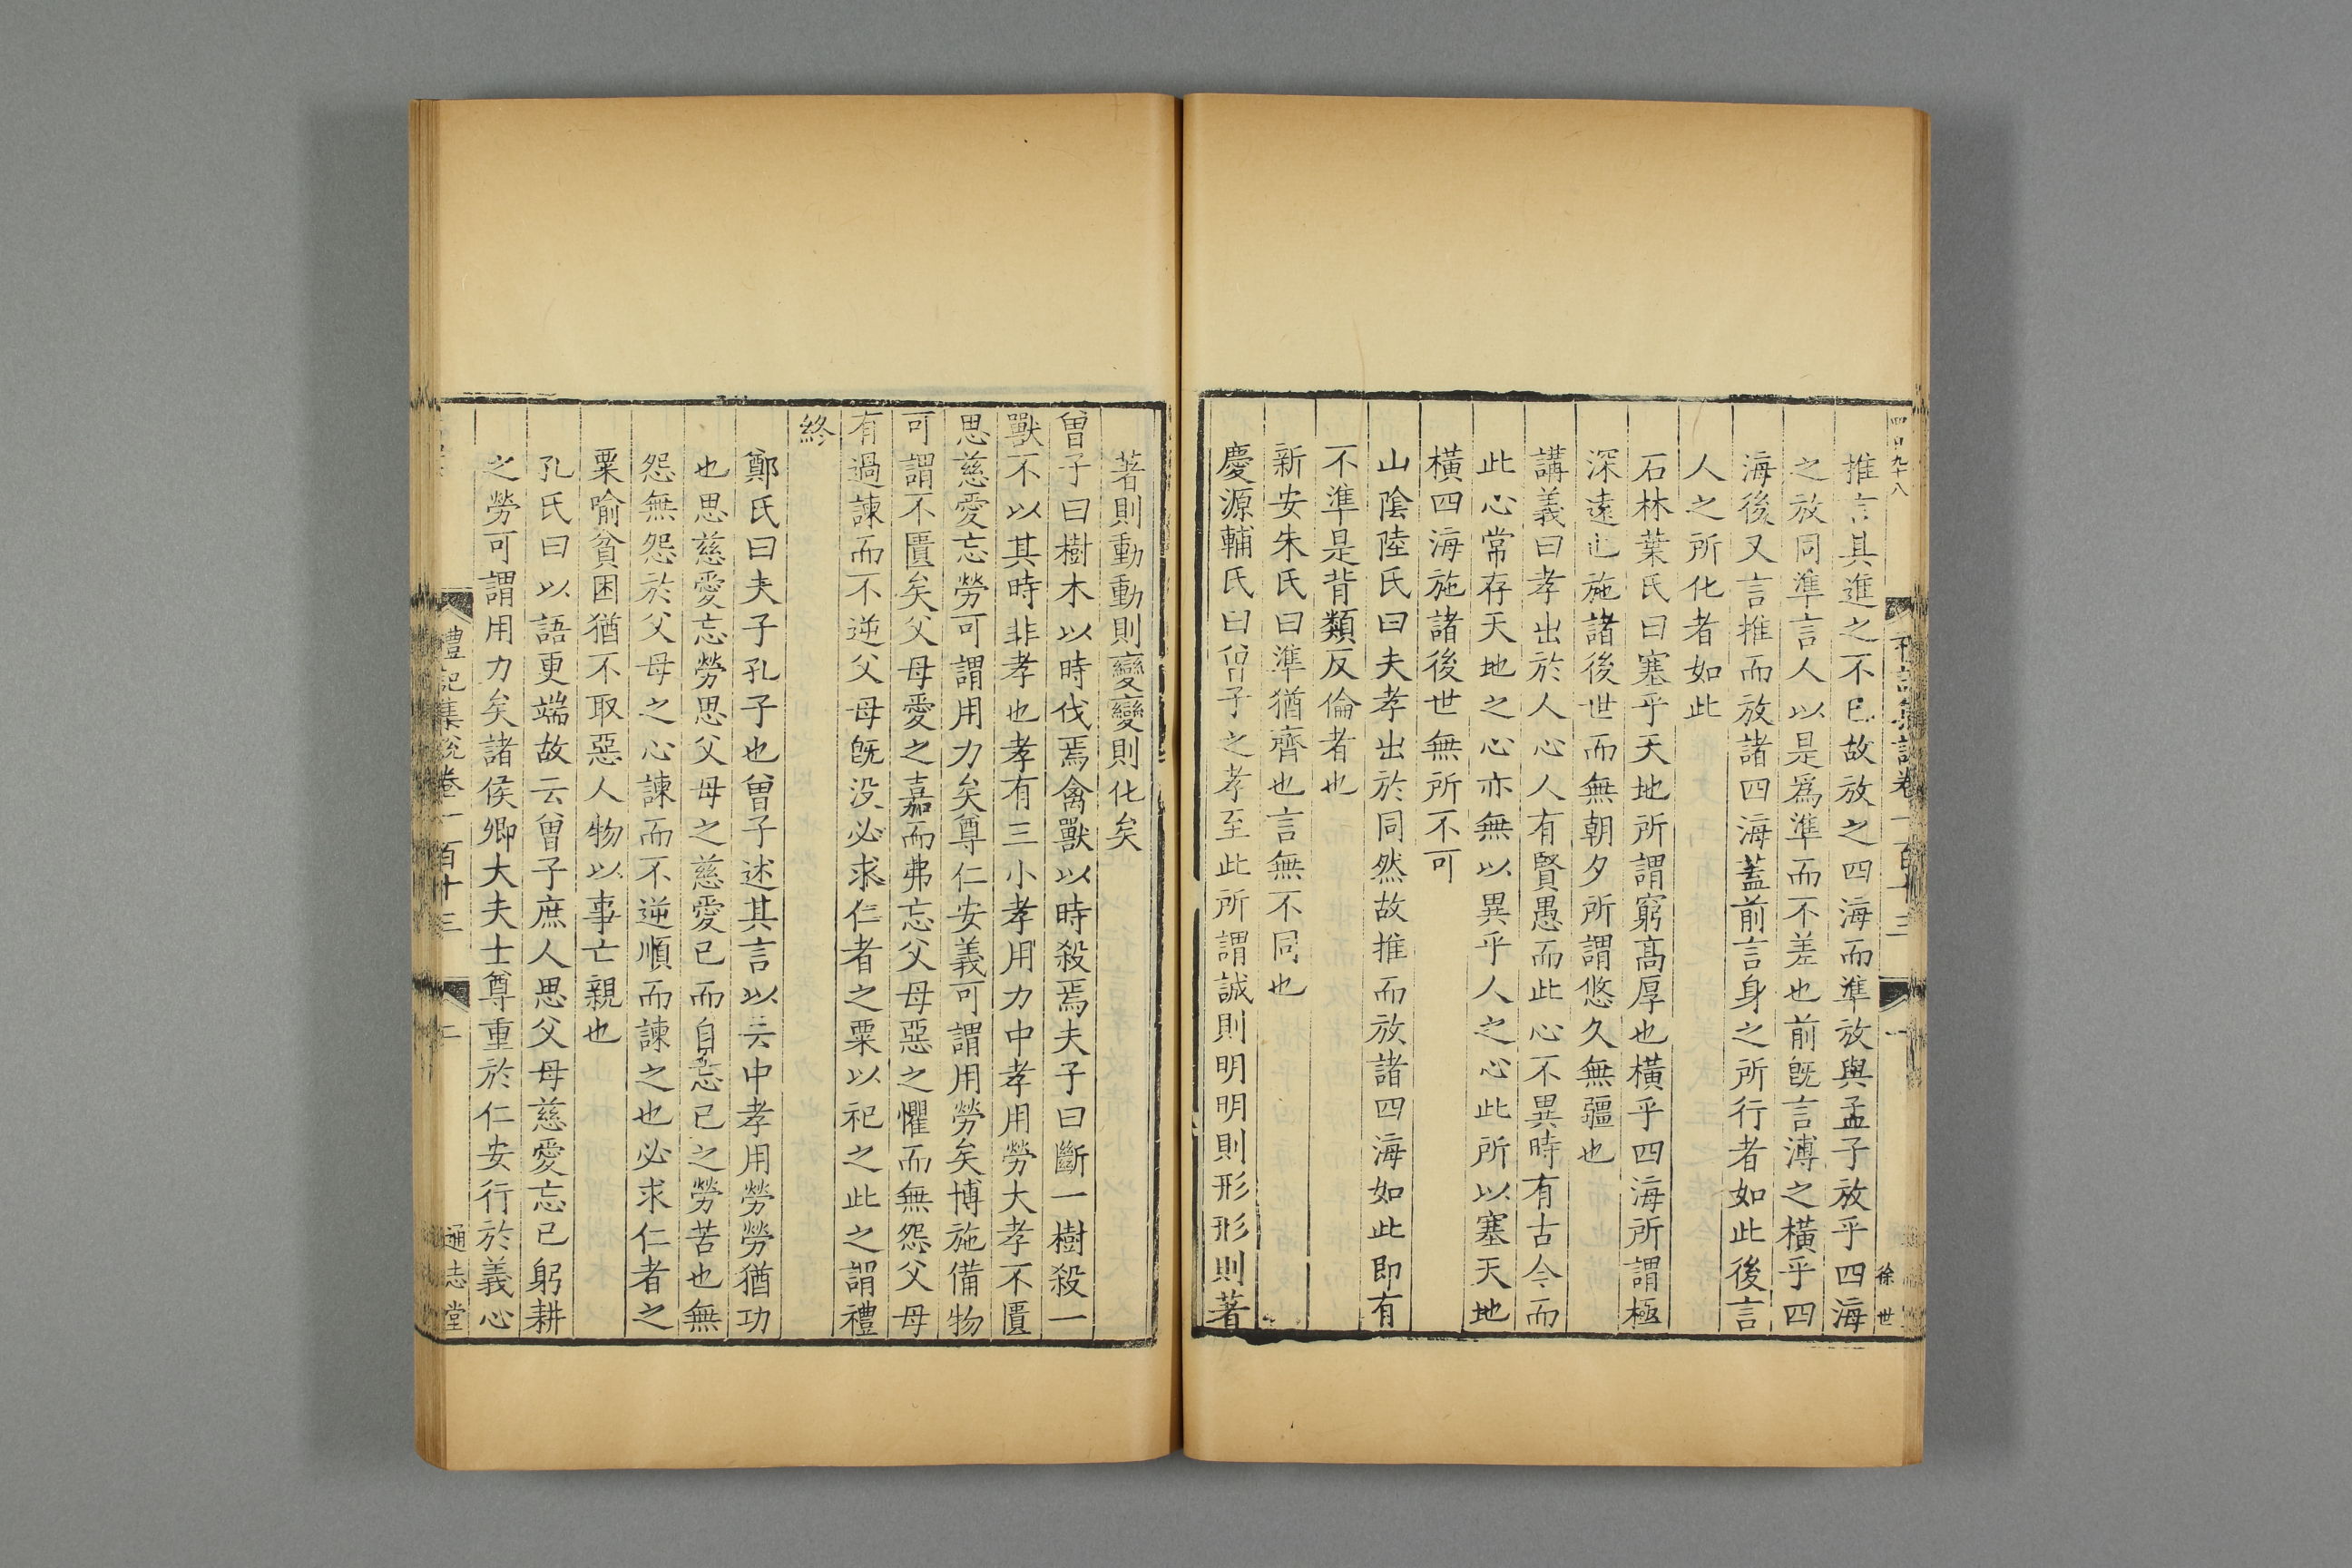 推言其進之不已故放之四海而準放與孟子放乎四海
之放同準言人以是爲準而不差也前旣言溥之橫乎四
海後又言推而放諸四海蓋前言身之所行者如此後言
人之所化者如此
石林葉氏曰塞乎天地所謂窮高厚也橫乎四海所謂極
深遠也施諸後世而無朝夕所謂悠久無疆也
講義曰孝出於人心人有賢愚而此心不異時有古今而
此心常存天地之心亦無以異乎人之心此所以塞天地
橫四海施諸後世無所不可
山陰陸氏曰夫孝出於同然故推而放諸四海如此即有
不準是背類反倫者也
新安朱氏曰準猶齊也言無不同也
慶源輔氏曰曾子之孝至此所謂誠則明明則形形則著
著則動動則變變則化矣
曾子曰樹木以時伐焉禽獸以時殺焉夫子曰斷一樹殺一
獸不以其時非孝也孝有三小孝用力中孝用勞大孝不匱
思慈愛忘勞可謂用力矣尊仁安義可謂用勞矣博施備物
可謂不匱矣父母愛之嘉而弗忘父母惡之懼而無怨父母
有過諫而不逆父母旣沒必求仁者之粟以祀之此之謂禮
終
鄭氏曰夫子孔子也曾子述其言以云中孝用勞勞猶功
也思慈愛忘勞思父母之慈愛已而自忘已之勞苦也無
怨無怨於父母之心諫而不逆順而諫之也必求仁者之
粟喻貧困猶不取惡人物以事亡親也
孔氏曰以語更端故云曾子庶人思父母慈愛忘已躬耕
之勞可謂用力矣諸侯卿大夫士尊重於仁安行於義心
禮記集說卷一百十三
二
通志堂